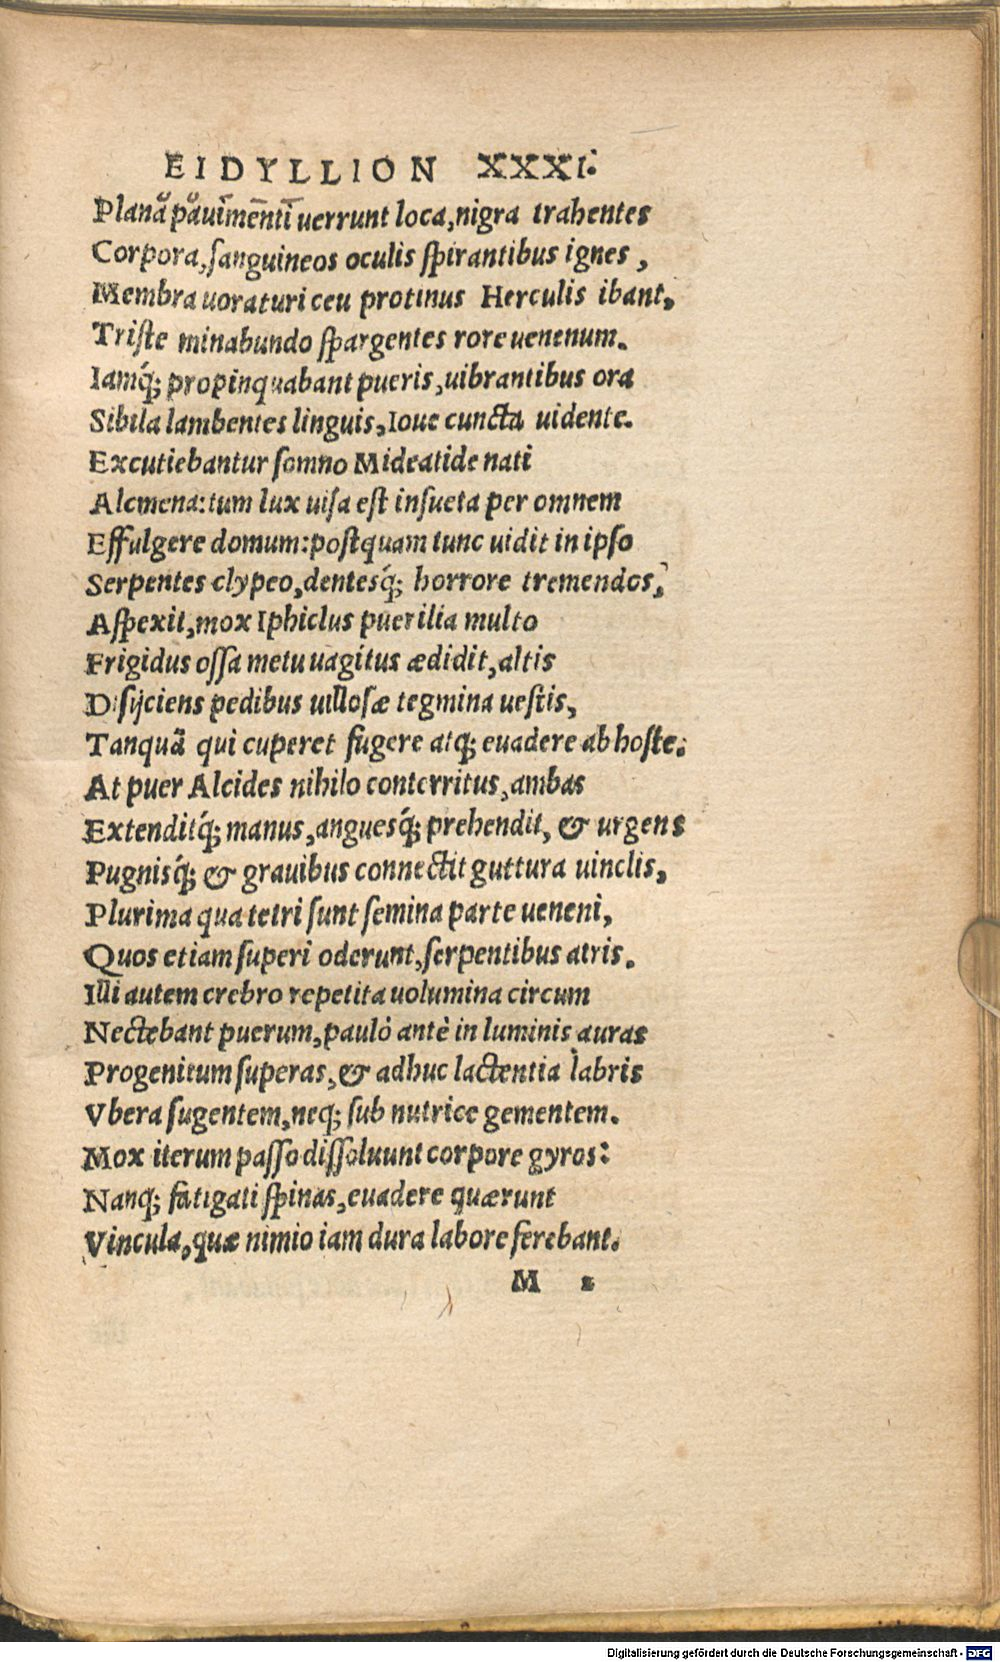 EIDYLLION XXXI.
Plana pauimenti uerrunt loca, nigra trahentes
Corpora, sanguineos oculis spirantibus ignes,
Membra uoraturi ceu protinus Herculis ibant,
Triste minabundo spargentes rore uenenum.
Iamq́; propinquabant pueris, uibrantibus ora
Sibila lambentes linguis, Ioue cuncta uidente.
Excutiebantur somno Mideatide nati
Alcmena: tum lux uisa est insueta per omnem
Effulgere domum: postquam tunc uidit in ipso
Serpentes clypeo, dentesq́; horrore tremendos,
Aspexit, mox Iphiclus puerilia multo
Frigidus ossa metu uagitus ædidit, altis
Disijciens pedibus uillosæ tegmina uestis,
Tanquã qui cuperet fugere atq; euadere ab hoste.
At puer Alcides nihilo conterritus, ambas
Extenditq́; manus, anguesq́; prehendit, & urgens
Pugnisq́; & grauibus connectit guttura uinclis,
Plurima qua tetri sunt semina parte ueneni,
Quos etiam superi oderunt, serpentibus atris.
Illi autem crebro repetita uolumina circum
Nectebant puerum, paulò antè in luminis auras
Progenitum superas, & adhuc lactentia labris
Vbera sugentem, neq; sub nutrice gementem.
Mox iterum passo dissoluunt corpore gyros:
Nanq; fatigati spinas, euadere quærunt
Vincula, quæ nimio iam dura labore ferebant.
M 2
Digitalisierung gefördert durch die Deutsche Forschungsgemeinschaft - DFG